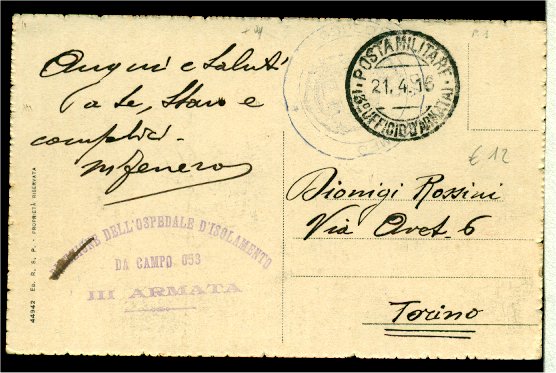 Auguri e Saluti
a te, Stavo e
complici.
POSTA MILITARE
21.4.16
3º UFFICIO D'ARMATA
€ 12
Dionigi Rossini
Via Ovet. 6
Torino
DIREZIONE DELL'OSPEDALE D'ISOLAMENTO
DA CAMPO 053
III ARMATA
44942 ED. R. S. P. - PROPRIETÀ RISERVATA